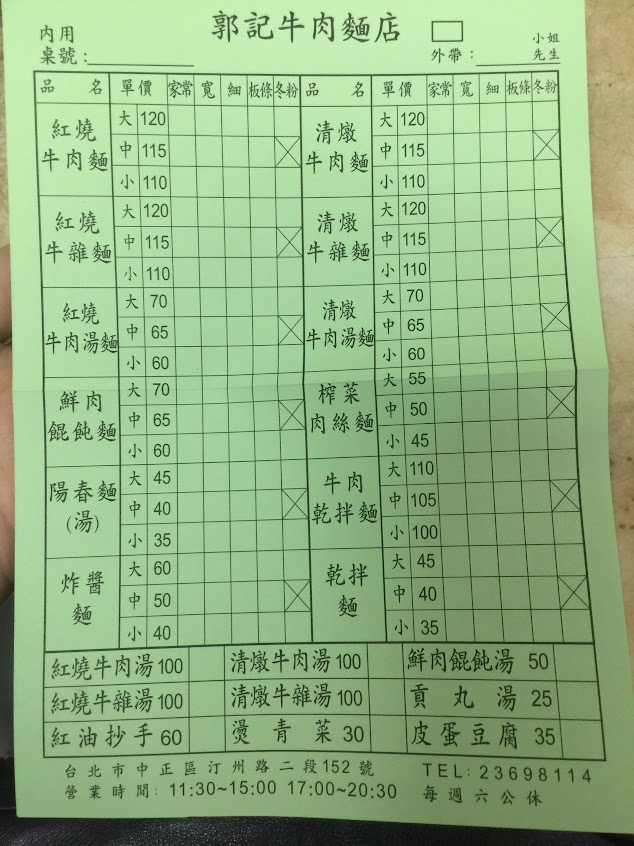 郭記牛肉麵店
內用
桌號:
外帶: 小姐 先生
品名 單價 家常 寬 細 板條 冬粉 品名 單價 家常 寬 細 板條 冬粉
紅燒牛肉麵 大 120 中 115 小 110
清燉牛肉麵 大 120 中 115 小 110
紅燒牛雜麵 大 120 中 115 小 110
清燉牛雜麵 大 120 中 115 小 110
紅燒牛肉湯麵 大 70 中 65 小 60
清燉牛肉湯麵 大 70 中 65 小 60
鮮肉餛飩麵 大 70 中 65 小 60
榨菜肉絲麵 大 55 中 50 小 45
陽春麵(湯) 大 45 中 40 小 35
牛肉乾拌麵 大 110 中 105 小 100
炸醬麵 大 60 中 50 小 40
乾拌麵 大 45 中 40 小 35
紅燒牛肉湯 100 清燉牛肉湯 100 鮮肉餛飩湯 50
紅燒牛雜湯 100 清燉牛雜湯 100 貢丸湯 25
紅油抄手 60 燙青菜 30 皮蛋豆腐 35
台北市中正區汀州路二段152號 TEL: 23698114
營業時間: 11:30~15:00 17:00~20:30 每週六公休